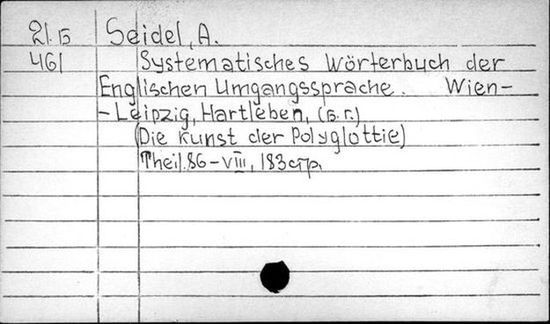 21.Б Seidel, A.
461 Systematisches Wörterbuch der
Englischen Umgangssprache. Wien-
-Leipzig, Hartleben, (Б.г.)
(Die Kunst der Polyglottie)
Theil.86-VIII, 183стр.